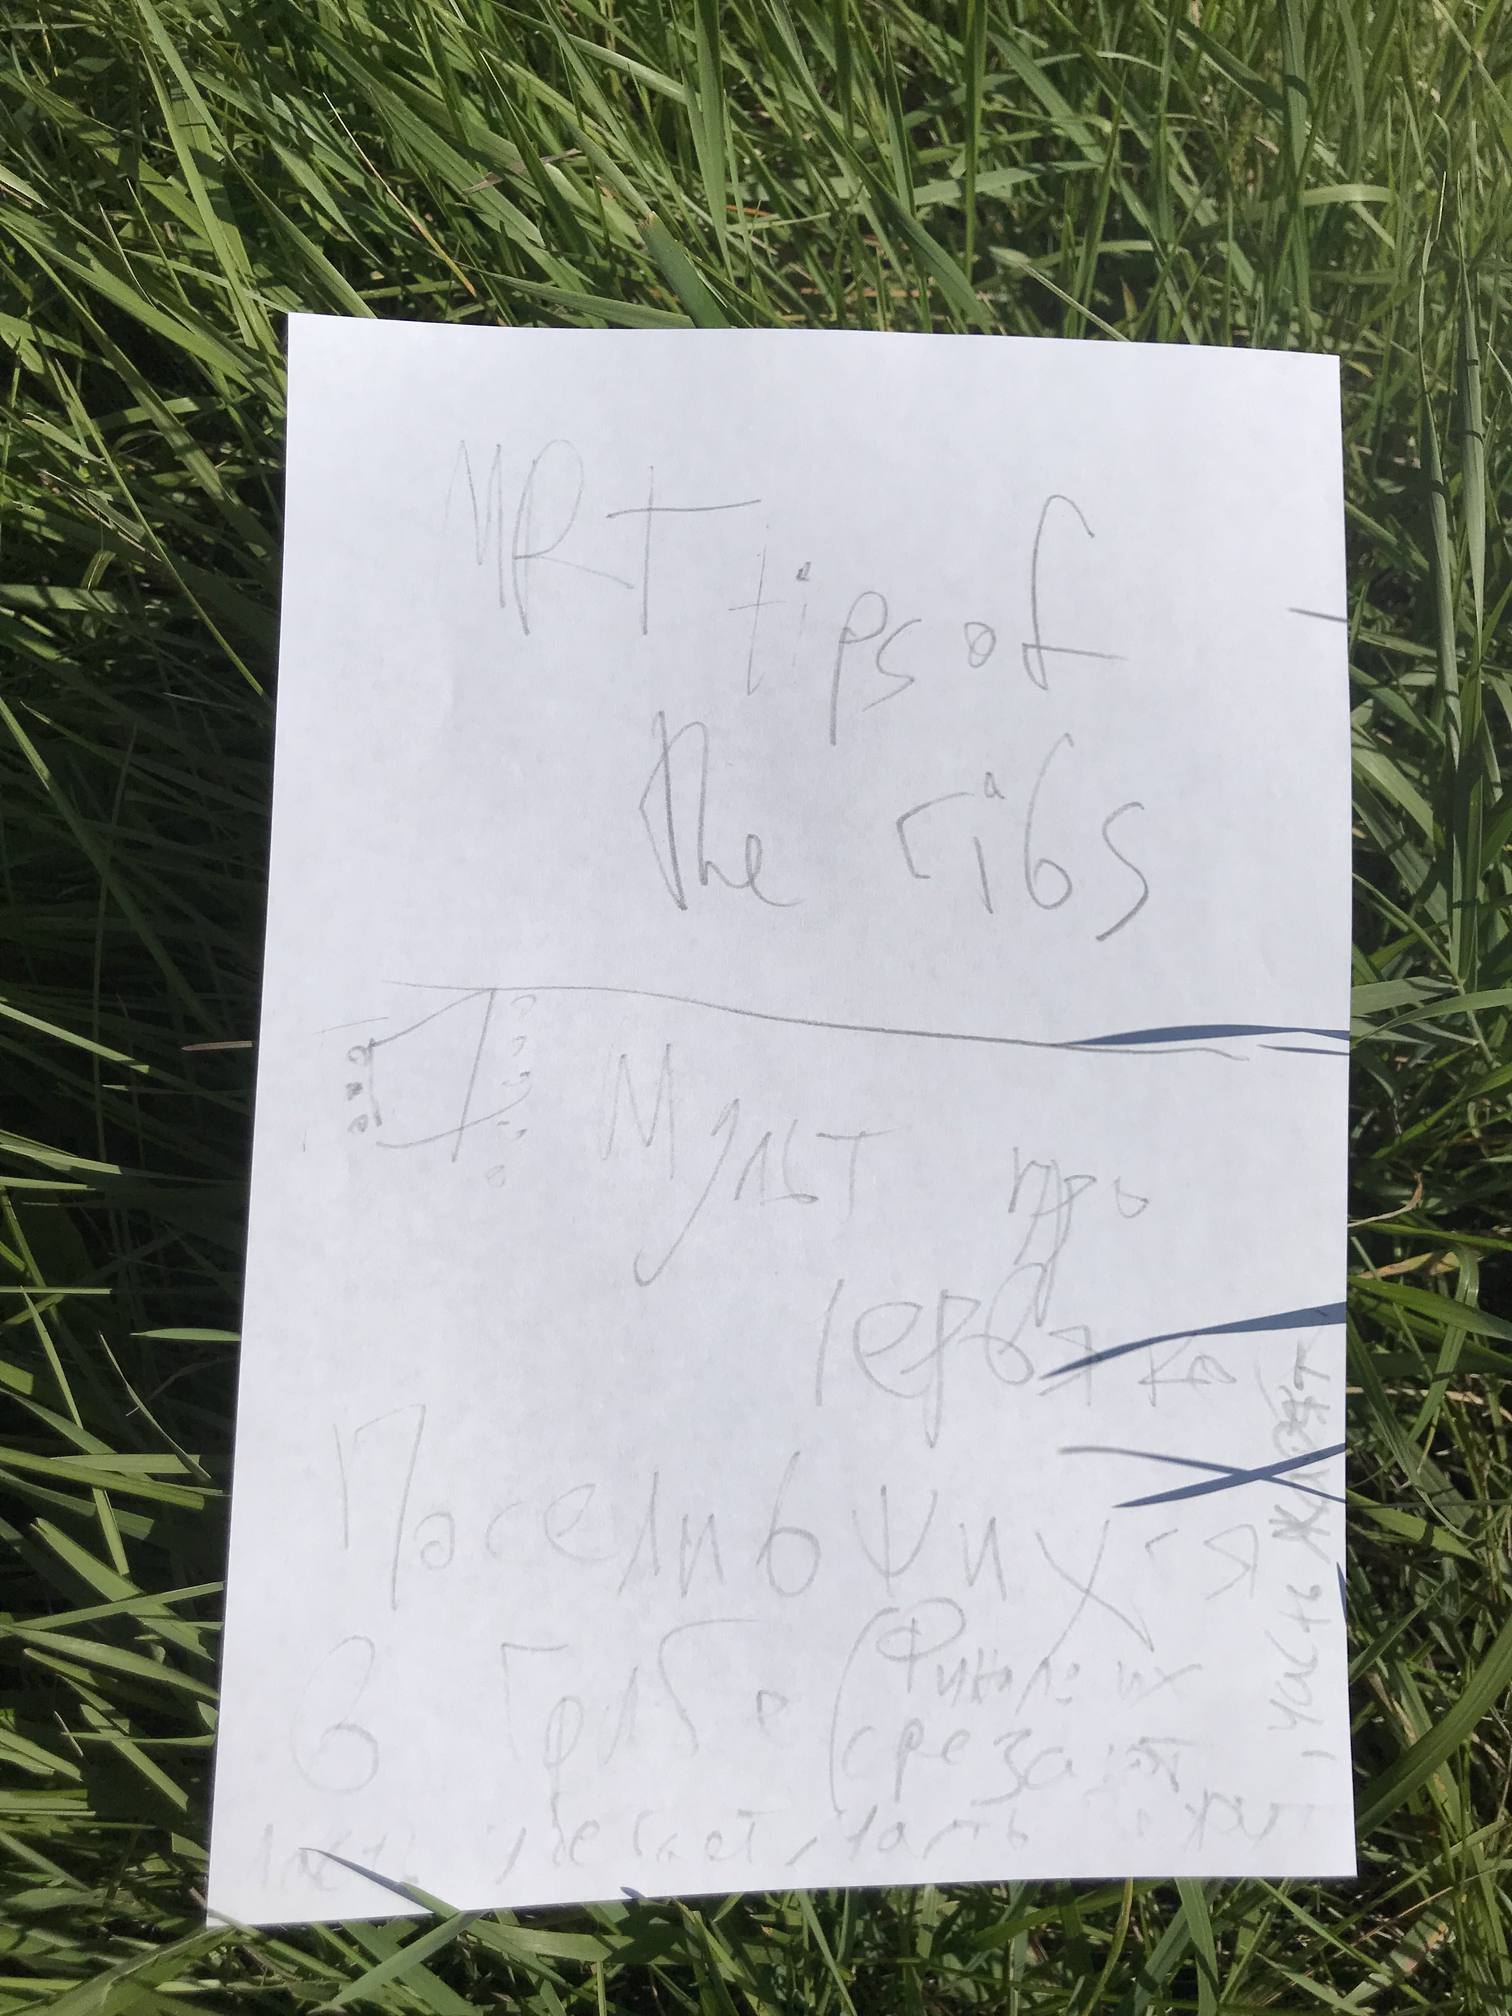 MRT tips of
the ribs
Мульт про
червяка
Поселившихся
в горбе (Финале их
срезают
часть убегает, часть
, часть